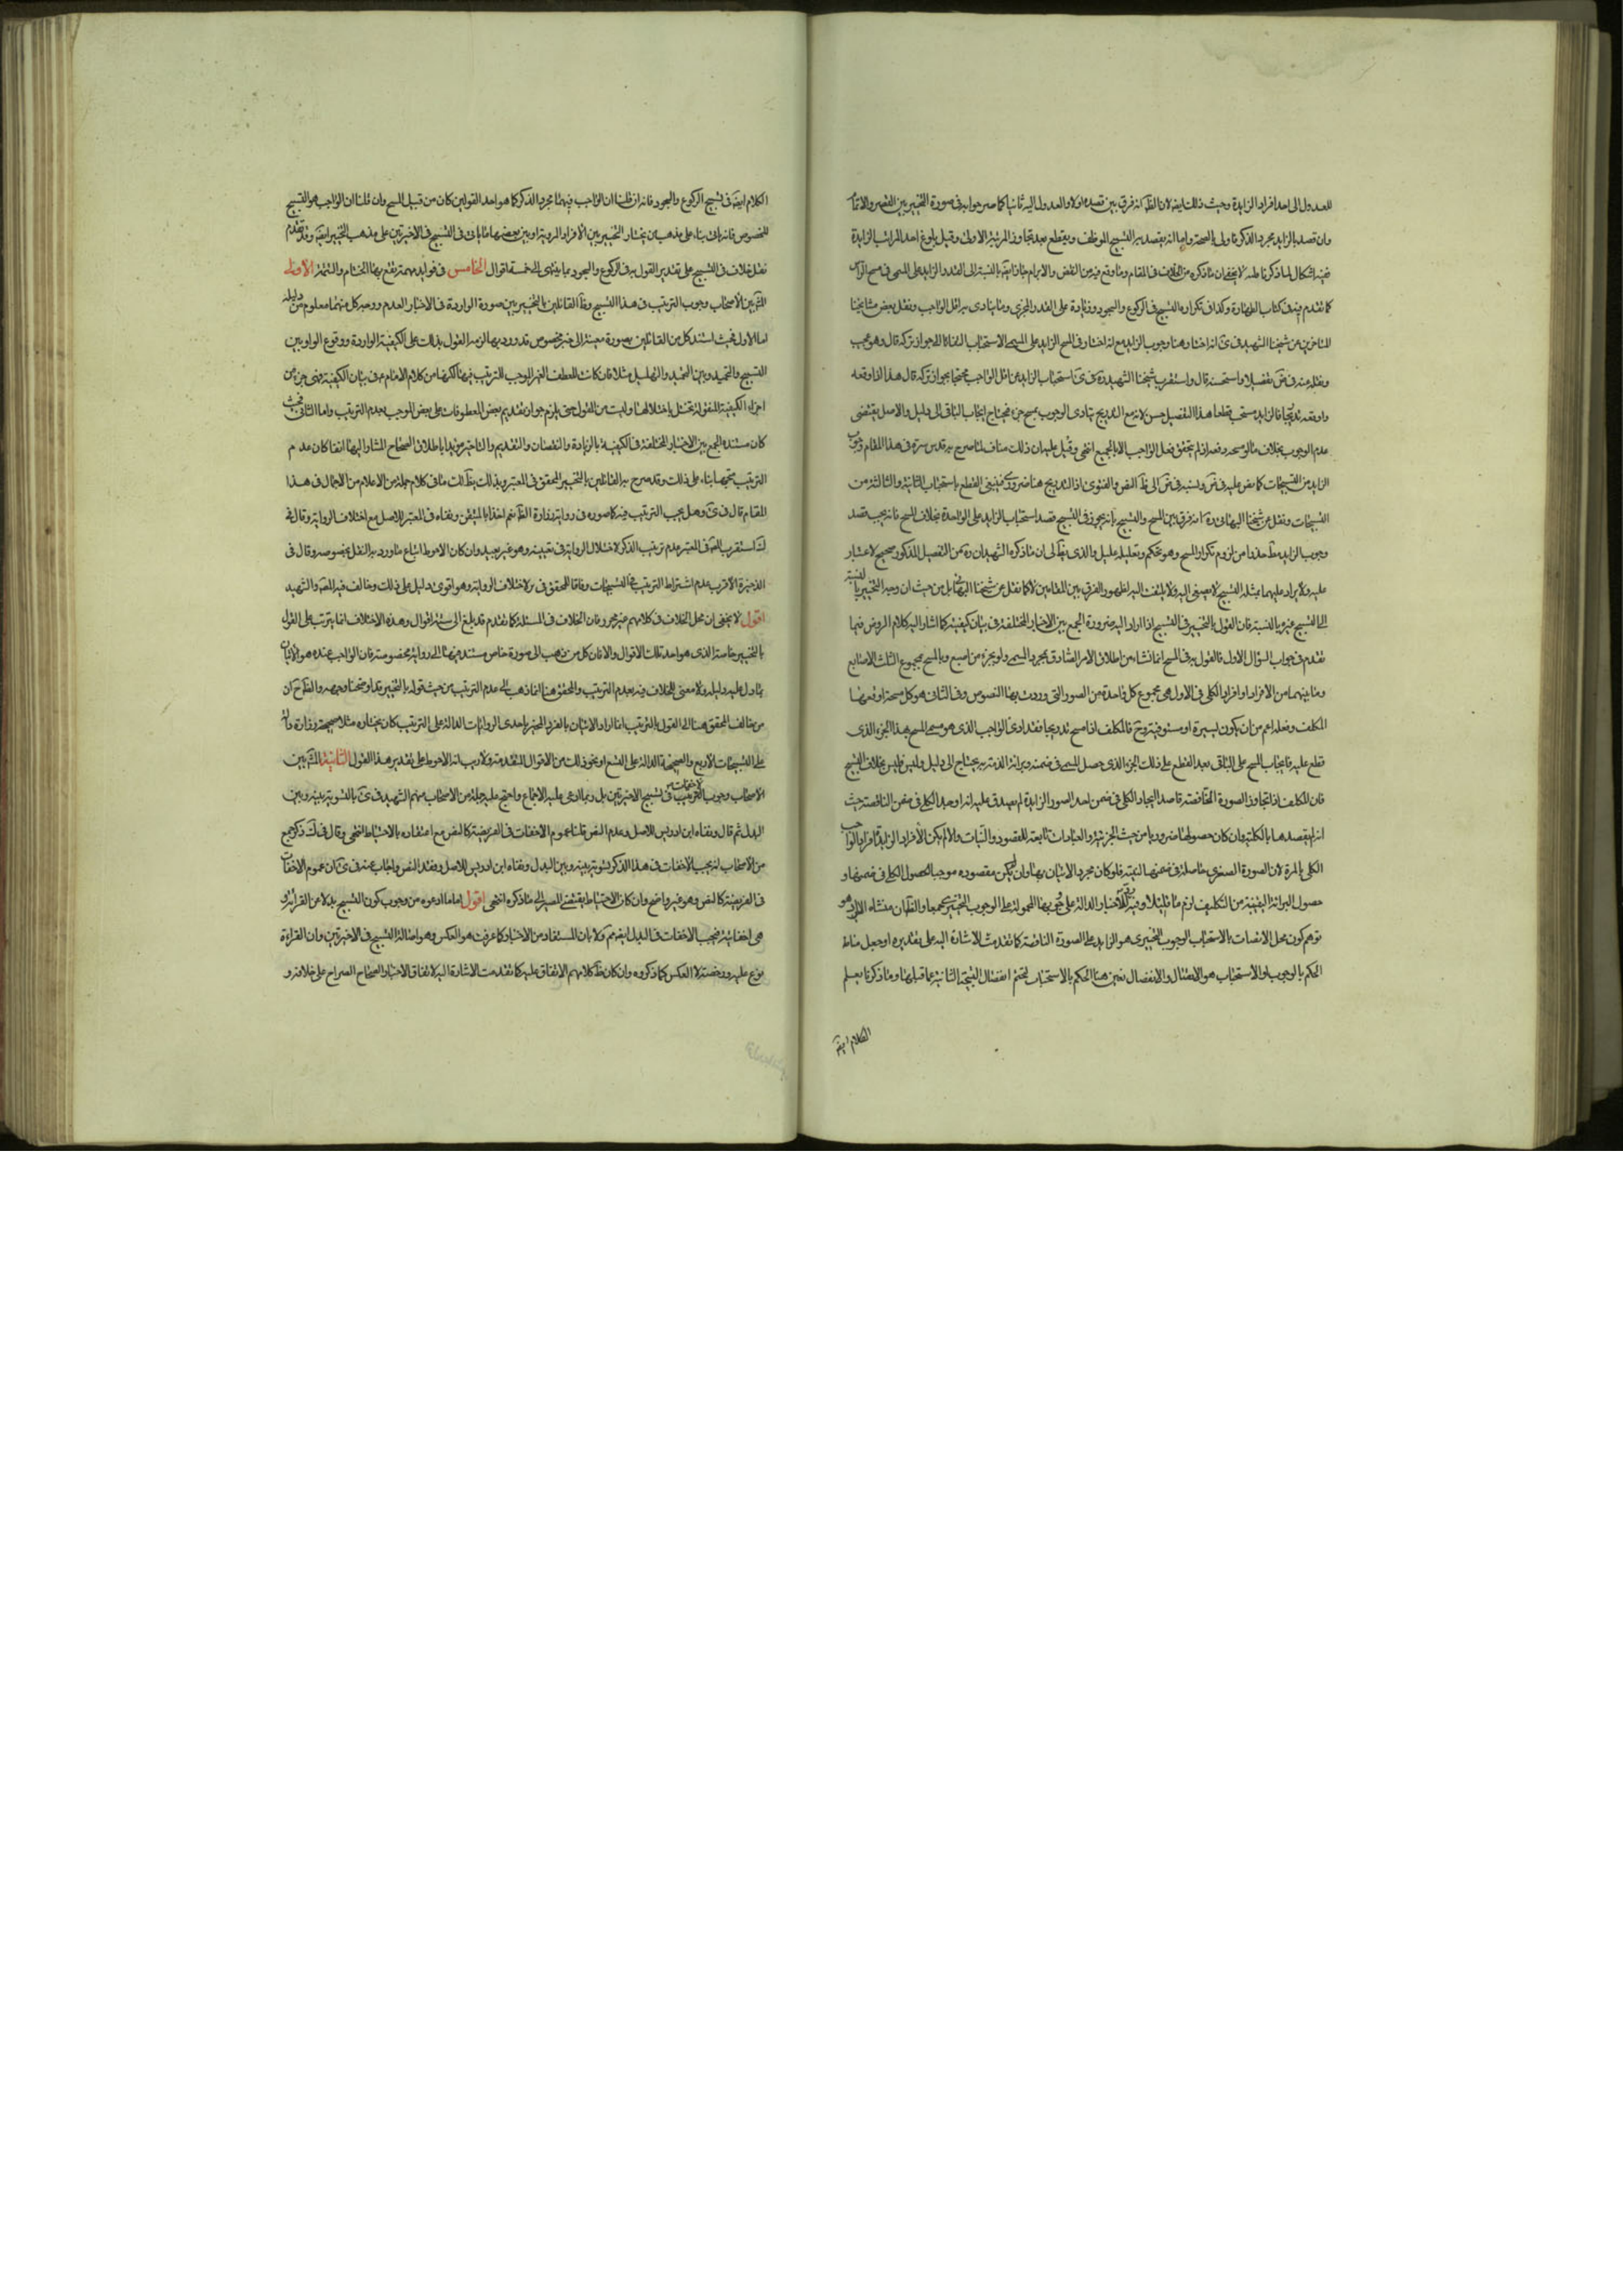 للعدول الى احد افراد الزايدة وحيث ذلك ايضا لان الظ انه فرق بين قصده اولا والعدول اليه ثانيا كما صرحوا به فى صورة التخيير بين القصر والاتمام
وان قصد بالزايد مجرد الذكر فاولى بالصحة واما انه يقصد به التسبيح الموظف ويقطع بعد تجاوز المرتبة الاولى وقبل بلوغ احد المراتب الزايدة
ففيه اشكال لما ذكرنا لا يخفى ان ما ذكره من الخلاف فى المقام وما وقع فيه من النقض والابرام جار ايضا بالنسبة الى القدر الزايد على المسمى فى مسح الراس
كما تقدم فى كتاب الطهارة وكذا فى تكراره التسبيح فى الركوع والسجود وزيادة على القدر المجزي وما يتادى به اقل الواجب ونقل بعض مشايخنا
المتاخرين عن شيخنا الشهيد فى ى انه اختار هنا وجوب الزايد مع انه اختار فى المسح الزايد على المسمى الاستحباب التفاتا الى جواز تركه قال وهو عجيب
ونقل عنه فى ض تفصيلا واستحسنه قال واستقرب شيخنا الشهيد ره فى ى استحباب الزايد عن اقل الواجب محتجا بجواز تركه قال هذا اذا اوقعه
دفعة تدريجا فالزايد مستحب قطعا هذا التفصيل حسن لانه مع التدريج يتادى الوجوب بمسح جزء فيحتاج ايجاب الباقى الى دليل والاصل يقتضى
عدم الوجوب بخلاف ما لو مسحه دفعة اذ لم يتحقق فعل الواجب الا بالجميع انتهى وقيل عليه ان ذلك مناف لما صرح به قدس سره فى هذا المقام وجوب
الزايد من التسبيحات كما نص عليه فى ض ونسبه فى ض الى ظ النص والفتوى اذ التدريج هنا ضرورى فينبغى القطع باستحباب الثانية والثالثة من
التسبيحات ونقل عن شيخنا البهائى ره انه فرق بين المسح والتسبيح بانه يجوز فى التسبيح قصد استحباب الزايد على الواحدة بخلاف المسح فانه يجب قصد
وجوب الزايد مط حذرا من لزوم تكرار المسح وهو تحكم وتعليله عليل والذى يظ لى ان ما ذكره الشهيدان ره من التفصيل المذكور صحيح لا غبار
عليه والايراد عليهما بمثله التسبيح لا يصغى اليه ولا يلتفت اليه لظهور الفرق بين المقامين لا كما نقل عن شيخنا البهائى بل من حيث ان وجه التخيير بالنسبة
الى التسبيح غيره بالنسبة فان القول بالتخيير فى التسبيح اذا اراد اليه ضرورة الجمع بين الاخبار المختلفة فى بيان كيفيته كما اشار اليه كلام الروض فيما
تقدم فى جواب السؤال الاول فالقول به فى المسح انما نشا من اطلاق الامر الصادق بمجرد المسمى ولو بجزء من اصبع وبالمسح بمجموع الثلث الاصابع
وما بينهما من الافراد وافراد الكلى فى الاول هى مجموع كل واحدة من الصور التى وردت بها النصوص وفى الثانى هو كل مسحة اوقعها
المكلف وفعله اعم من ان يكون يسيرة او مستوفية وح فالمكلف اذا مسح تدريجا فقد ادى الواجب الذى هو مسمى المسح بهذا الجزء الذى
قطع عليه فايجاب المسح على الباقى بعد القطع على ذلك الجزء الذى حصل المسمى فى ضمنه وبرائة الذمة به يحتاج الى دليل وليس فليس بخلاف التسبيح
فان المكلف اذا تجاوز الصورة الناقصة قاصدا ايجاد الكلى فى ضمن احد الصور الزايدة لم يصدق عليه انه اوجد الكلى فى ضمن الناقصة حيث
انه لم يقصدها بالكلية وان كان حصولها ضروريا من حيث الجزئية والعبادات تابعة للقصود والنيات والا لم يكن الافراد الزايدة افراد الواجب
الكلى بالمرة لان الصورة الصغرى حاصلة فى ضمنها البتة فلو كان مجرد الاتيان بها وان لم يكن مقصوده موجبا لحصول الكلى فى ضمنها و
حصول البرائة اليقينية من التكليف لزم ما قلناه وفيه رد للاخبار الدالة على المحمولة على الوجوب التخييرى جمعا والظ ان منشاء الايراد هو
توهم كون محل الاتصاف بالاستحباب الوجوب التخييرى هو الزايد على الصورة الناقصة كما تقدمت الاشارة اليه على تقديره او جعل مناط
الحكم بالوجوب او الاستحباب هو الاتصال والانفصال تعين هنا الحكم بالاستحباب لتحتم انفصال التسبيحة الثانية عما قبلها وما ذكرنا يعلم
الكلام ايضا
الكلام ايضا فى تسبيح الركوع والسجود فانه ان قلنا ان الواجب فيهما مجرد الذكر كما هو احد القولين كان من قبيل المسح وان قلنا ان الواجب هو التسبيح
المخصوص فانه ياتى بناء على مذهب من يختار التخيير بين الافراد المروية او بين بعضها ما ياتى فى التسبيح فى الاخيرتين على مذهب التخيير ايضا وقد تقدم
نقل خلاف فى التسبيح على تقدير القول به فى الركوع والسجود بما ينتهى الى خمسة اقوال الخامس فى فوايد مهمة يقع بها الختام والتتمة الاولى
المش بين الاصحاب وجوب الترتيب فى هذا التسبيح وظ القائلين بالتخيير بين صورة الواردة فى الاخبار العدم ووجه كل منهما معلوم من دليله
اما الاول فحيث استند كل من القائلين بصورة معينة الى خبر مخصوص قد ورد بها لزمه القول بذلك على الكيفية الواردة ووقوع الواو بين
التسبيح والتحميد وبين التحميد والتهليل مثلا وان كانت للعطف الغير الموجب للترتيب فيها لكنها من كلام الامام ع فى بيان الكيفية فهى جزء من
اجزاء الكيفية المنقولة تختل باختلالها وليست من القول حتى يلزم جواز تقديم بعض المعطوفات على بعض الموجب لعدم الترتيب واما الثانى فحيث
كان مستنده الجمع بين الاخبار المختلفة فى الكيفية بالزيادة والنقصان والتقديم والتاخير مؤيدا باطلاق الصحاح المشار اليها انفا كان عدم
الترتيب متجها بناء على ذلك وقد صرح به القائلين بالتخيير المحقق فى المعتبر وبذلك يظ لك ما فى كلام جملة من الاعلام من الاجمال فى هذا
المقام قال فى ى وهل يجب الترتيب فيه كما صوره فى رواية زرارة الظ نعم اخذا بالمتيقن ونفاه فى المعتبر للاصل مع اختلاف الرواية وقال فى
ك استقرب المص فى المعتبر عدم ترتيب الذكر لاختلال الرواية فى تعيينه وهو غير بعيد وان كان الاحوط اتباع ما ورد به النقل بخصوصه وقال فى
الذخيرة الاقرب عدم اشتراط الترتيب فى التسبيحات وفاقا للمحقق فى بر لاختلاف الرواية وهو اقوى دليل على ذلك وخالف فيه المص والشهيد
اقول لا يخفى ان محل الخلاف فى كلامهم غير محرر فان الخلاف فى المسئلة كما تقدم قد بلغ الى ستة اقوال وهذه الاختلاف انما يترتب على القول
بالتخيير خاصة الذى هو احد تلك الاقوال والا فان كل من ذهب الى صورة خاص مستند فيها الى رواية بخصوصه فان الواجب عنده هو الاتيان
بما دل عليه دليله ولا معنى للخلاف فيه بعدم الترتيب والمحقق هنا انما ذهب الى عدم الترتيب من حيث قوله بالتخيير قد اوضحنا وجهه والظ ح ان
من خالف المحقق هنا الى القول بالترتيب انما اراد الاتيان بالفرد المخير باحدى الروايات الدالة على الترتيب كان يختاره مثلا صحيحة زرارة دالة
على التسبيحات الاربع والصحيحة الدالة على التسع او نحو ذلك من الاقوال المتقدمة ولا ريب انه الاحوط على تقدير هذا القول الثانية المش بين
الاصحاب وجوب الاخفات فى تسبيح الاخيرتين بل ربما ادعى عليه الاجماع واحتج عليه جملة من الاصحاب منهم الشهيد فى ى بالتسوية بينه وبين
البدل ثم قال ونفاه ابن ادريس للاصل وعدم النص قلنا عموم الاخفات فى الفريضة كالنص مع اعتضاده بالاحتياط انتهى وقال فى ك ذكر جمع
من الاصحاب انه يجب الاخفات فى هذا الذكر تسوية بينه وبين البدل ونفاه ابن ادريس للاصل وفقد النص واجاب عنه فى ى بان عموم الاخفات
فى الفريضة كالنص وهو غير واضح وان كان الاحتياط يقتضى المصير الى ما ذكره انتهى اقول اما ما ادعوه من وجوب كون التسبيح بدلا عن القرائة و
هى اخفاتية فيجب الاخفات فى البدل ايضا فمم ولا بان المستفاد من الاخبار كما عرفت هو العكس وهو اصالة التسبيح فى الاخيرتين وان القراءة
نوع عليه ورخصة لا العكس كما ذكروه وان كان ظ كلامهم الاتفاق عليه كما تقدمت الاشارة اليه لاتفاق الاخبار الصحاح الصراح على خلافه و